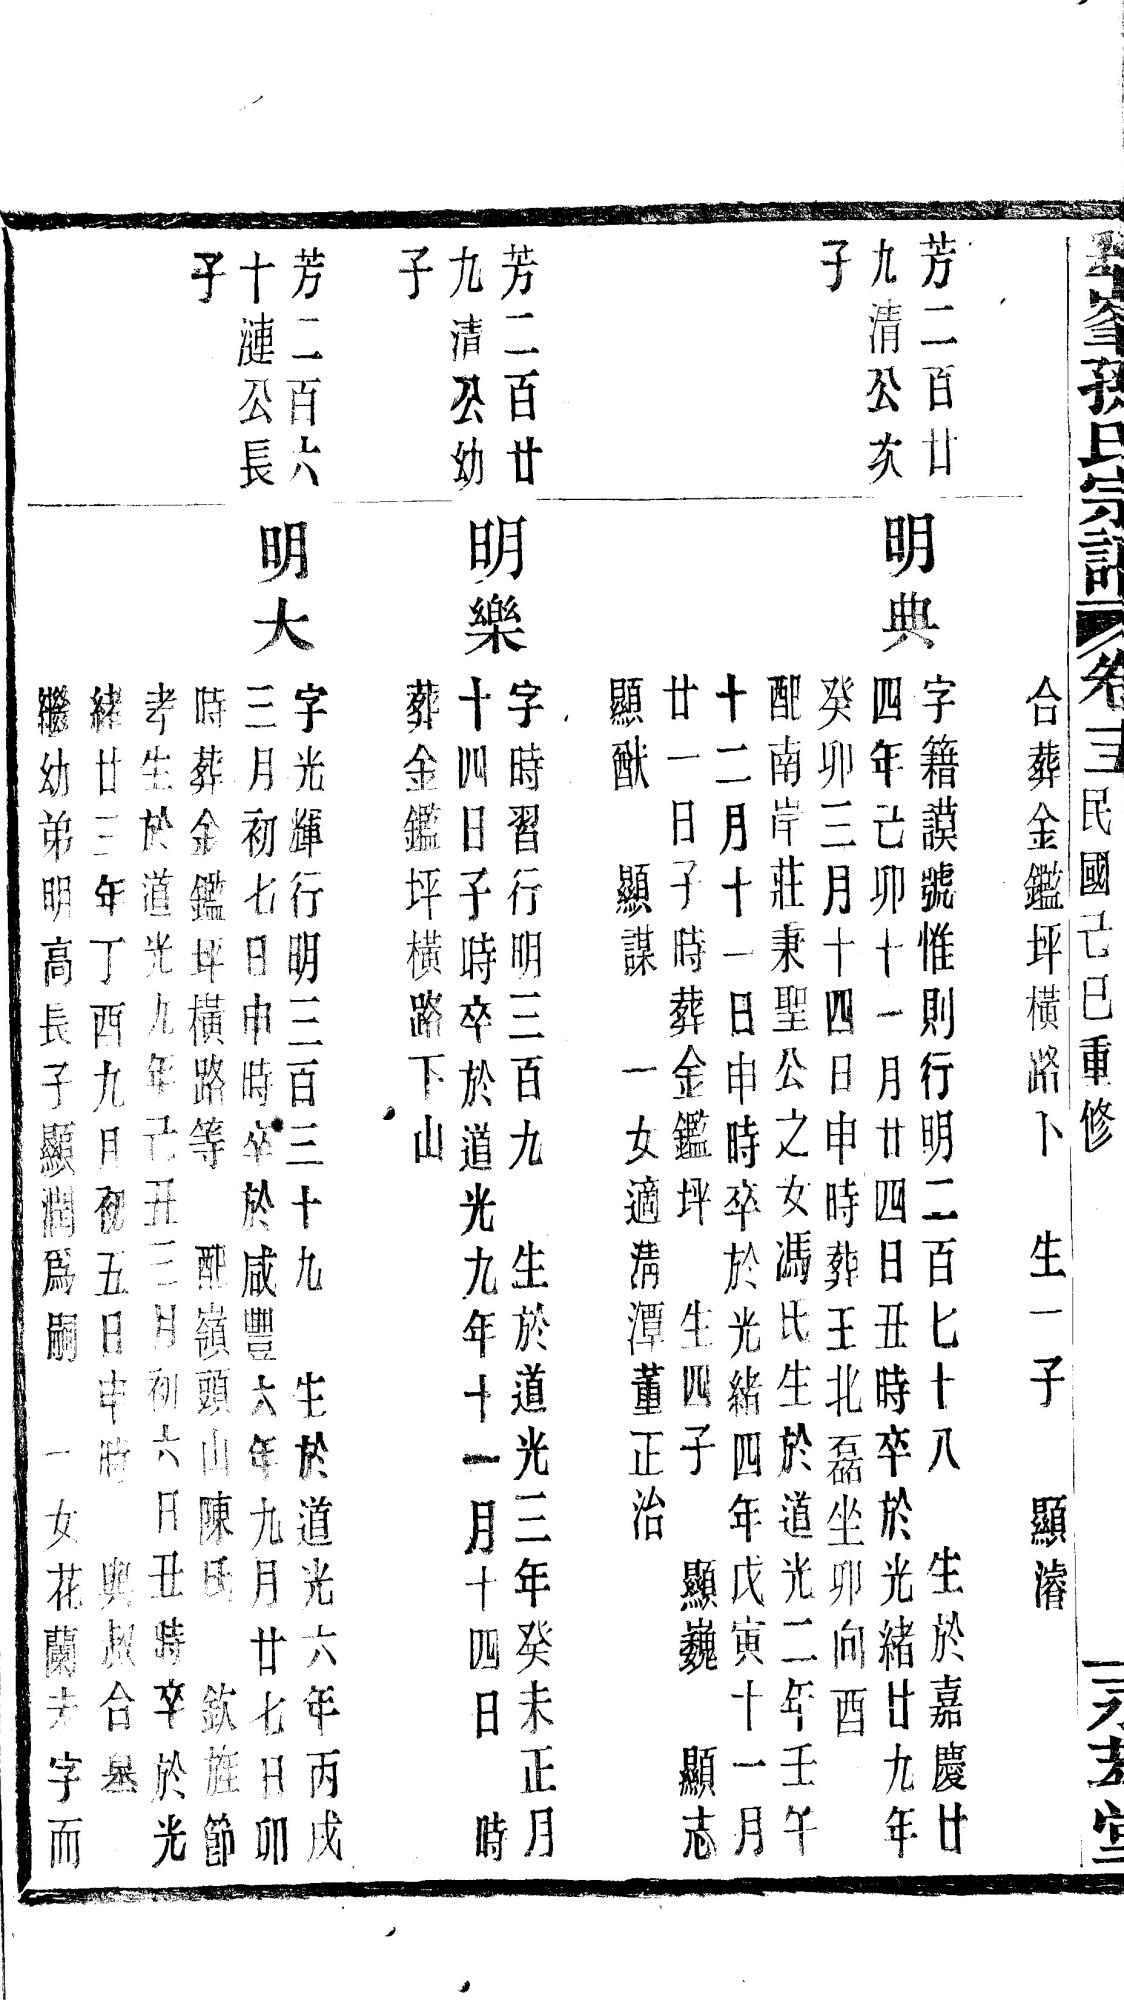 峯孫氏宗譜 卷 民國己巳重修
堂
合葬金鑑坪橫路下 生一子 顯濬
芳二百廿
九清公次
子
明典
字籍謨號惟則行明二百七十八 生於嘉慶廿
四年己卯十一月廿四日丑時卒於光緒廿九年
癸卯三月十四日申時葬王北磊坐卯向酉
配南岸莊秉聖公之女馮氏生於道光二年壬午
十二月十一日申時卒於光緒四年戊寅十一月
廿一日子時葬金鑑坪 生四子 顯巍 顯志
顯猷 顯謀 一女適溝潭董正治
芳二百廿
九清公幼
子
明樂
字時習行明三百九 生於道光三年癸未正月
十四日子時卒於道光九年十一月十四日 時
葬金鑑坪橫路下山
芳二百六
十漣公長
子
明大
字光輝行明三百三十九 生於道光六年丙戌
三月初七日申時卒於咸豐六年九月廿七日卯
時葬金鑑坪橫路等 配嶺頭山陳氏 欽旌節
孝生於道光九年己丑三月初六日丑時卒於光
緒廿三年丁酉九月初五日申時 與叔合墓
繼幼弟明高長子顯潤爲嗣 一女花蘭未字而